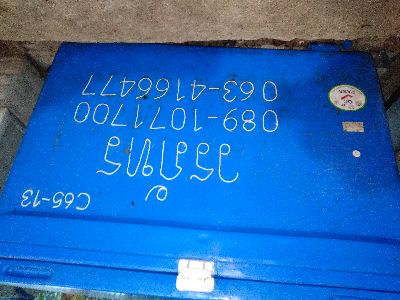 C65-13
วรภัทร
089-1071700
063-4166477